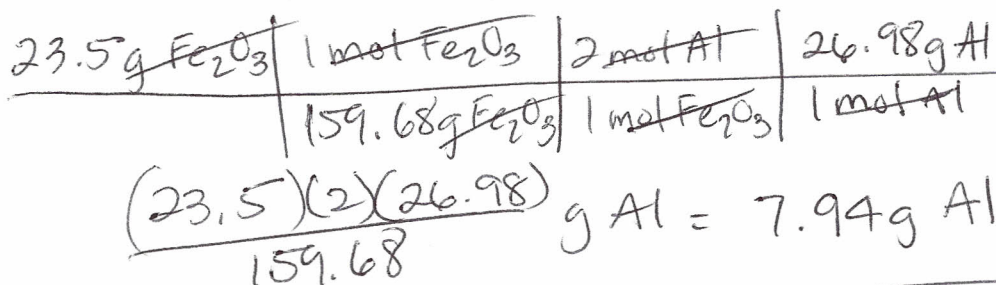 23.5g Fe₂O₃ | 1 mol Fe₂O₃ | 2 mol Al | 26.98g Al
159.68g Fe₂O₃ | 1 mol Fe₂O₃ | 1 mol Al
(23.5)(2)(26.98) g Al = 7.94g Al
159.68